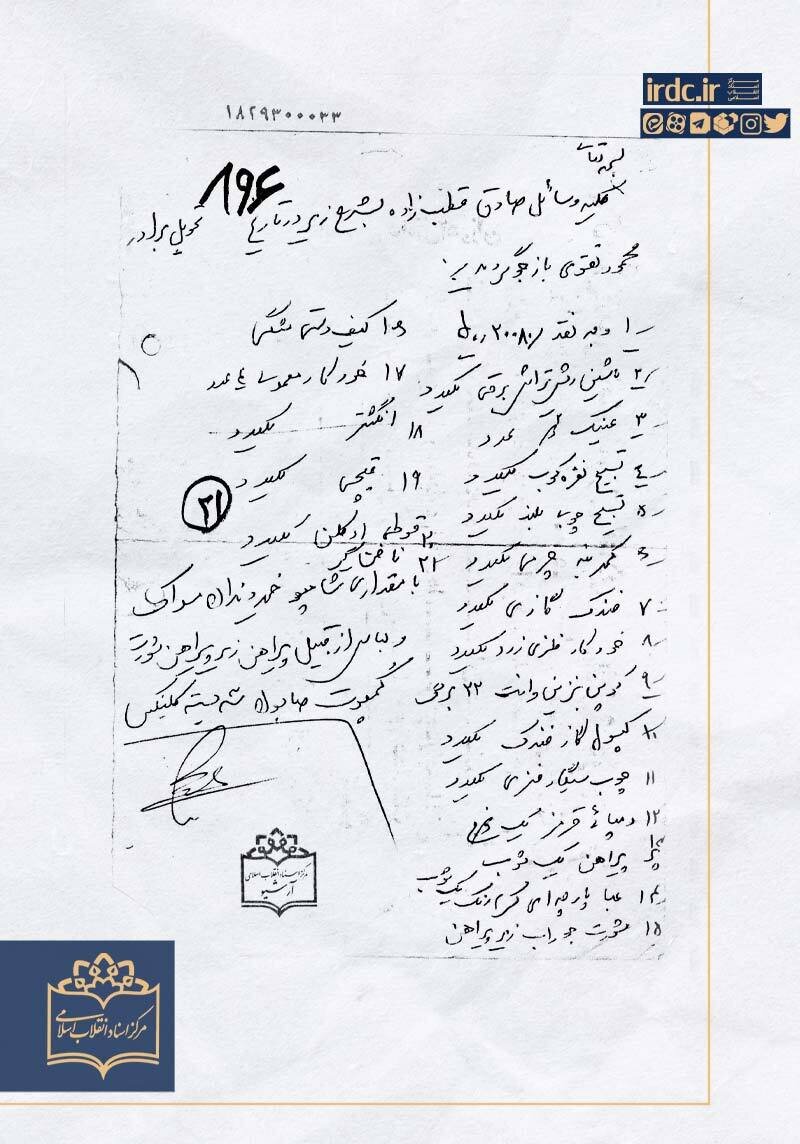 irdc.ir
مرکز اسناد انقلاب اسلامی
۱۸۲۹۳۰۰۰۳۳
بسمه تعالی
۸۹۶
کلیه وسائل صادق قطب زاده بشرح زیر در تاریخ تحویل برادر
محمود تقوی بازجو گردید:
۱ وجه نقد ۲۰۰۸۰
۲ ماشین ریش تراش برقی یکعدد
۳ عینک ۲ عدد
۴ تسبیح نقره کوب یکعدد
۵ تسبیح چوب بلند یکعدد
۶ کمربند چرمی یکعدد
۷ فندک گازی یکعدد
۸ خودکار فلزی زرد یکعدد
۹ کوپن بنزین وانت ۲۲ برگی
۱۰ کپسول گاز فندک یکعدد
۱۱ چوب سیگار فلزی یکعدد
۱۲ دمپائی قرمز یک زوج
۱۳ پیراهن یک ثوب
۱۴ عبا پارچه‌ای کرم رنگ یک ثوب
۱۵ شورت جوراب زیر پیراهن
۱۶ کیف دستی مشکی
۱۷ خودکار معمولی ۴ عدد
۱۸ انگشتر یکعدد
۱۹ قیچی یکعدد
۲۰ قوطی ادکلن یکعدد
۲۱ ناخنگیر
۲۱
با مقداری شامپو خمیر دندان مسواک
و لباس از قبیل پیراهن زیر پیراهن شورت
کمپوت صابون سه بسته کلینکس
مرکز اسناد انقلاب اسلامی
آرشیو
مرکز اسناد انقلاب اسلامی